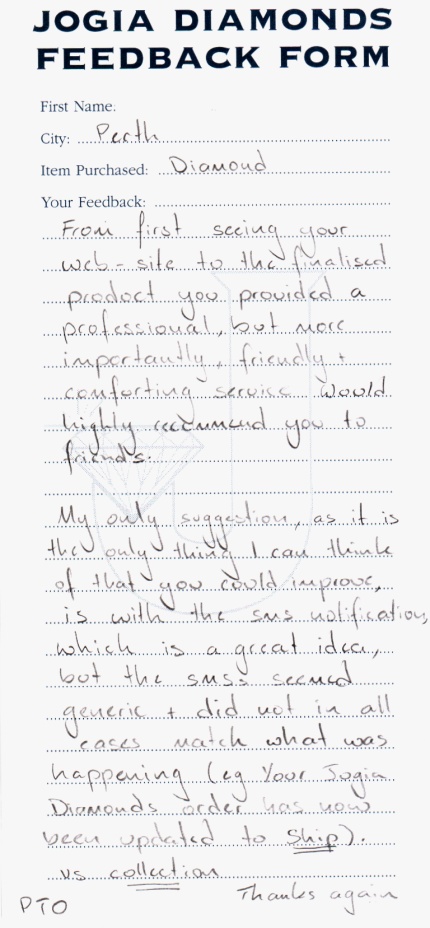 JOGIA DIAMONDS
FEEDBACK FORM
First Name.
City: Perth
Item Purchased: Diamond
Your Feedback:
From first seeing your
web-site to the finalised
product you provided a
professional, but more
importantly, friendly +
comforting service Would
highly recommend you to
friends.
My only suggestion, as it is
the only thing I can think
of that you could improve,
is with the sms notification,
which is a great idea,
but the smss seemed
generic + did not in all
cases match what was
happening (eg Your Jogia
Diamonds order has now
been updated to Ship).
vs collection
Thanks again
PTO